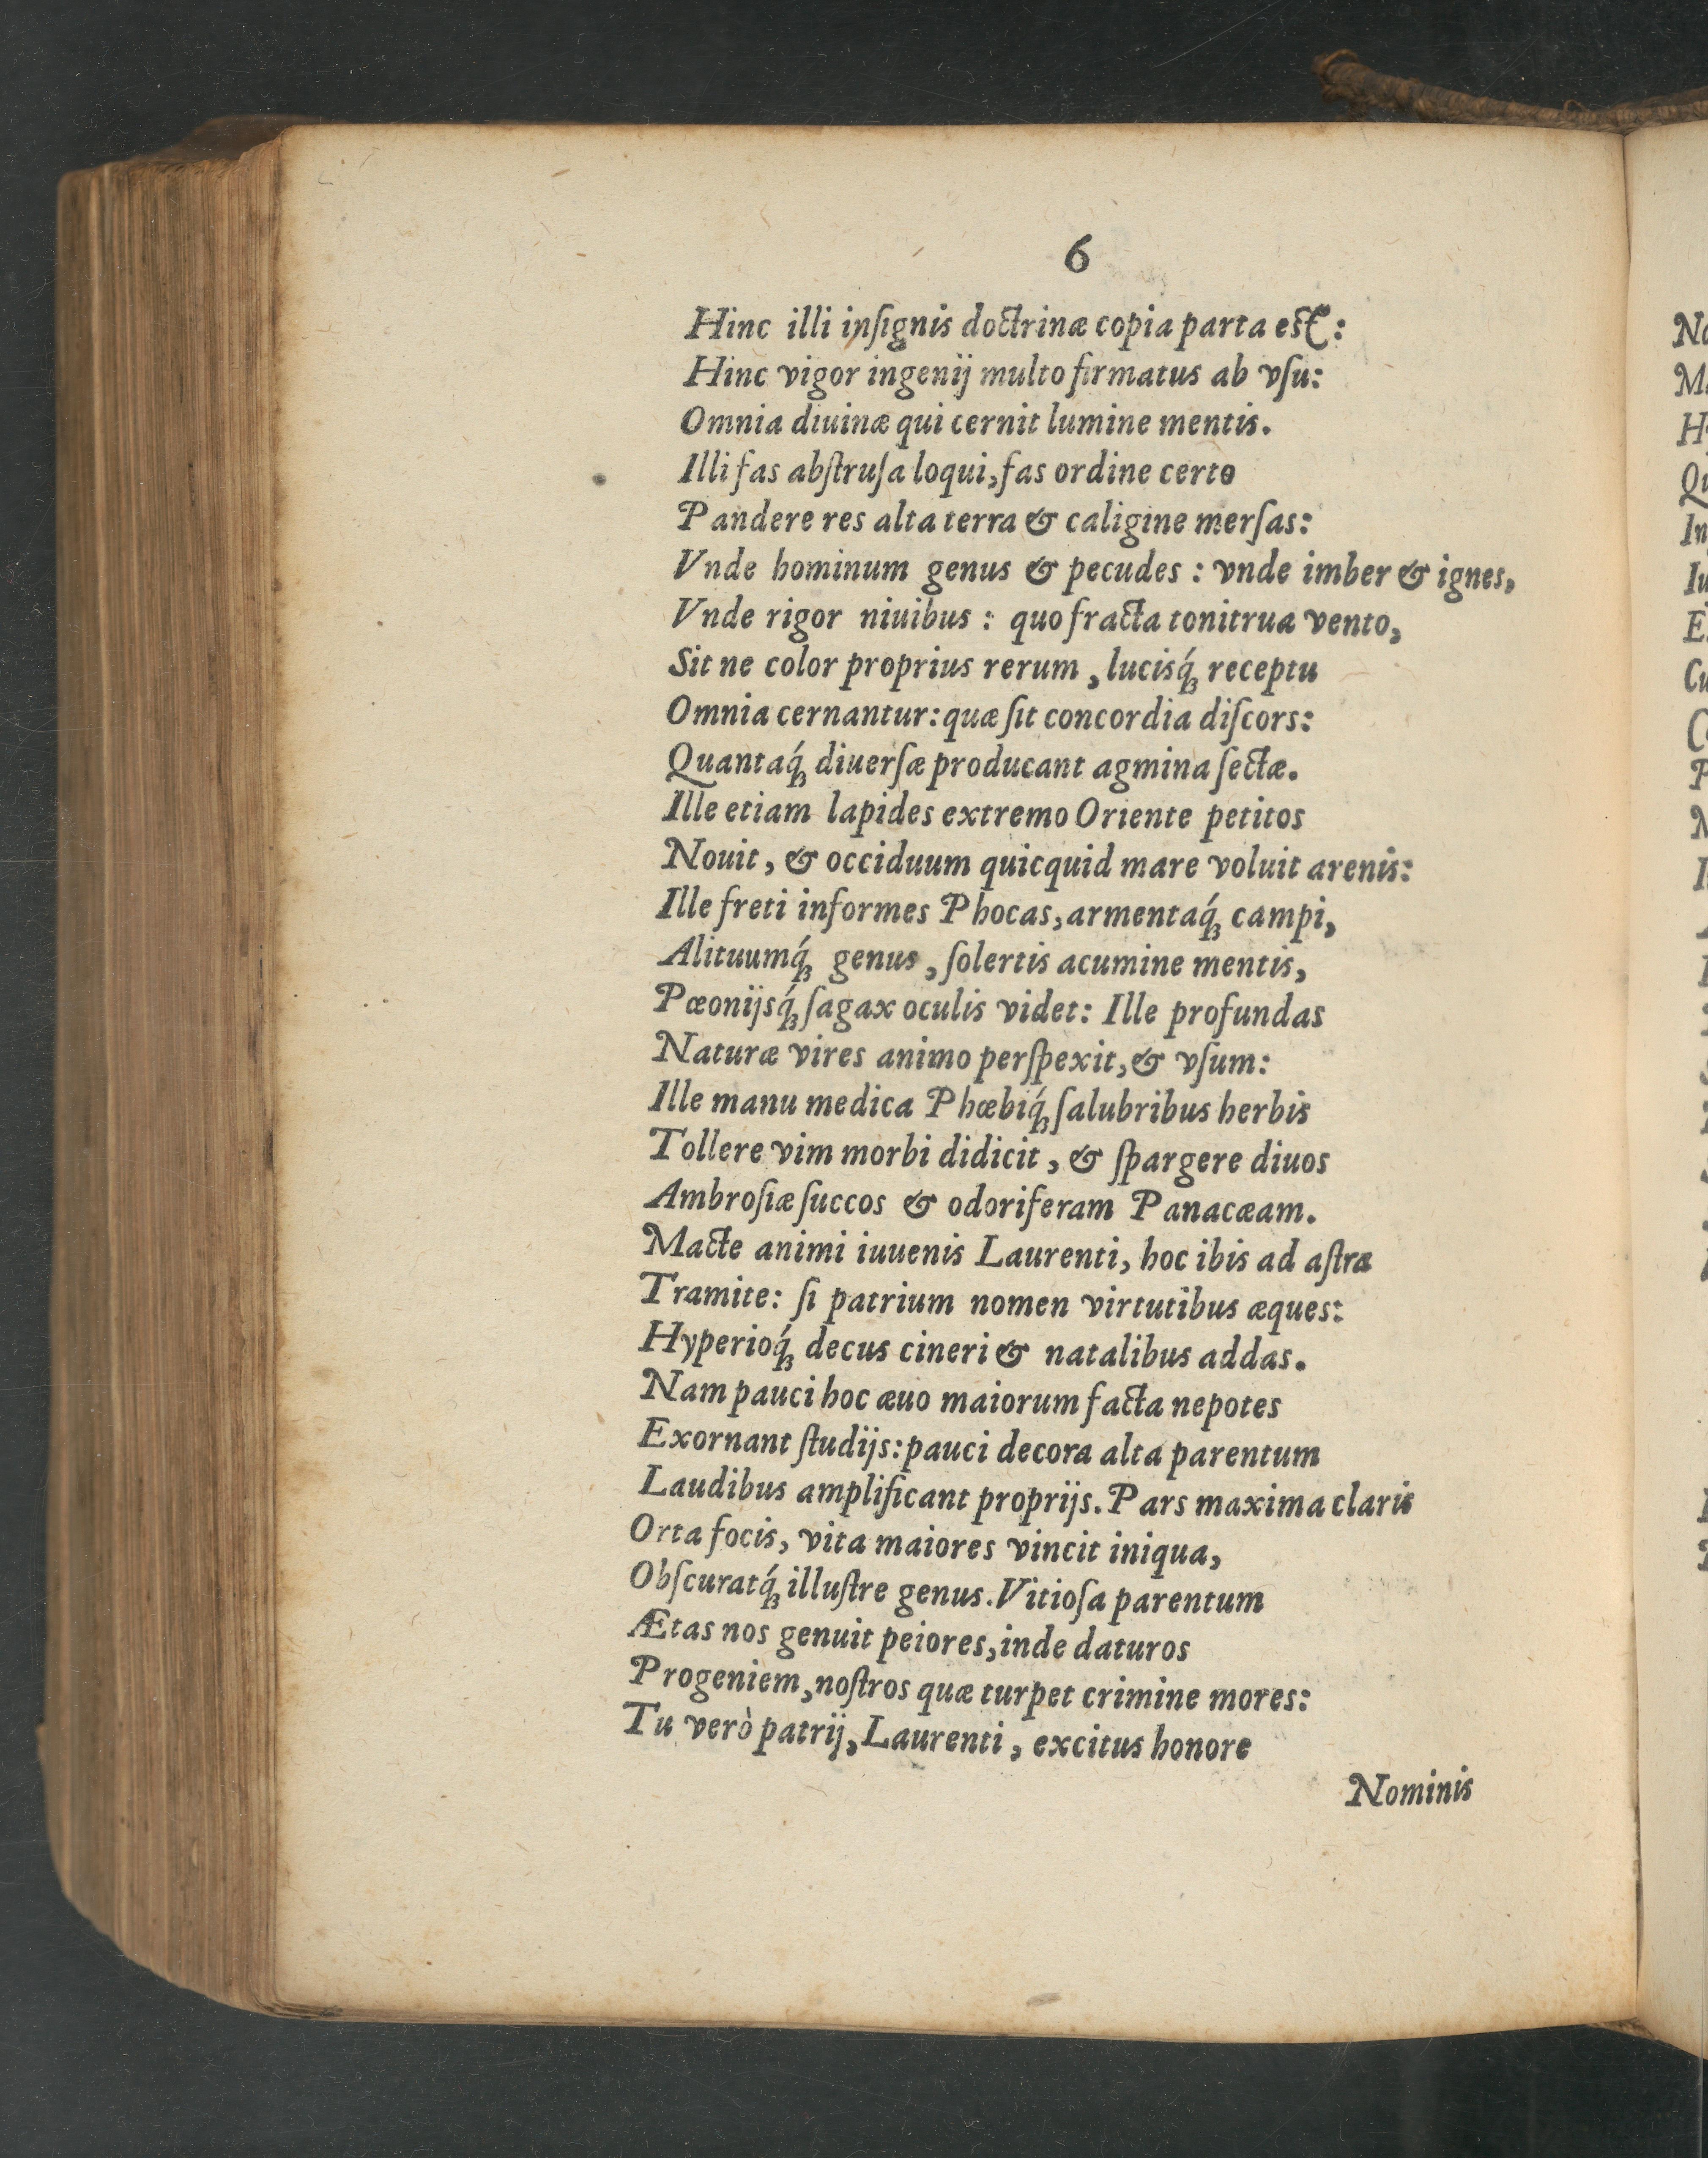 6
Hinc illi inſignis doctrinæ copia parta eſt:
Hinc vigor ingenij multo firmatus ab vſu:
Omnia diuinæ qui cernit lumine mentis.
Illi fas abſtruſa loqui, fas ordine certo
Pandere res alta terra & caligine merſas:
Vnde hominum genus & pecudes : vnde imber & ignes,
Vnde rigor niuibus : quo fracta tonitrua vento,
Sit ne color proprius rerum, lucisq́; receptu
Omnia cernantur: quæ ſit concordia diſcors:
Quantaq́; diuerſæ producant agmina ſectæ.
Ille etiam lapides extremo Oriente petitos
Nouit, & occiduum quicquid mare voluit arenis:
Ille freti informes Phocas, armentaq́; campi,
Alituumq́; genus, ſolertis acumine mentis,
Pœonijsq́; ſagax oculis videt: Ille profundas
Naturæ vires animo perſpexit, & vſum:
Ille manu medica Phœbiq́; ſalubribus herbis
Tollere vim morbi didicit, & ſpargere diuos
Ambroſiæ ſuccos & odoriferam Panacæam.
Macte animi iuuenis Laurenti, hoc ibis ad aſtra
Tramite: ſi patrium nomen virtutibus æques:
Hyperioq́; decus cineri & natalibus addas.
Nam pauci hoc æuo maiorum facta nepotes
Exornant ſtudijs: pauci decora alta parentum
Laudibus amplificant proprijs. Pars maxima claris
Orta focis, vita maiores vincit iniqua,
Obſcuratq́; illuſtre genus. Vitioſa parentum
Ætas nos genuit peiores, inde daturos
Progeniem, noſtros quæ turpet crimine mores:
Tu verò patrij, Laurenti, excitus honore
Nominis